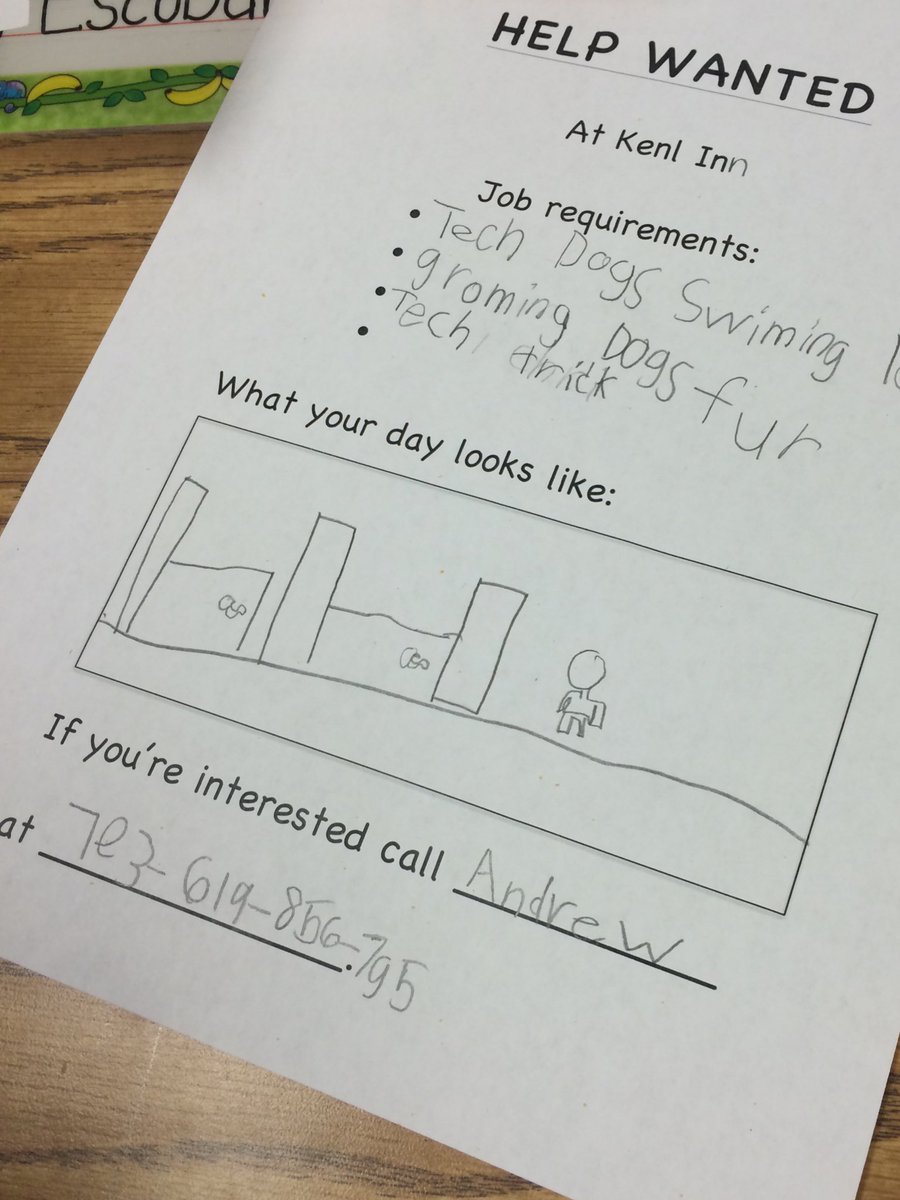 Escobar
HELP WANTED
At Kenl Inn
Job requirements:
• Tech Dogs Swiming
• groming Dogs fur
• Tech trick
•
What your day looks like:
If you're interested call Andrew
at 7e3-619-856-795.